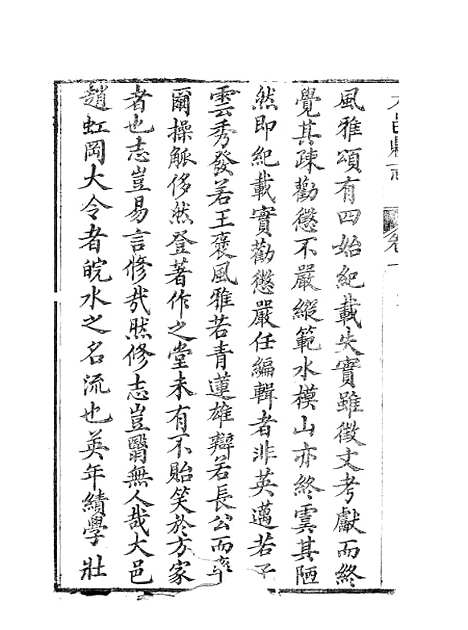 大邑縣志 卷
風雅頌有四始紀載失實雖徵文考獻而終
覺其疎勸懲不嚴縱範水模山亦終寞其陋
然即紀載實勸懲嚴任編輯者非英邁若子
雲秀發若王褒風雅若青蓮雄辯若長公而率
爾操觚侈然登著作之堂未有不貽笑於方家
者也志豈易言修哉然修志豈翳無人哉大邑
趙虹岡大令者皖水之名流也英年績學壯